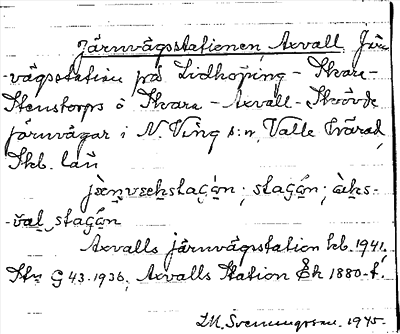 Järnvägsstationen, Axvall Järn
-vägsstation på Lidköping - Skara-
Stenstorps o Skara - Axvall - Skövde
järnvägar i N. Ving s:n, Valle härad,
Skb. län
stagǻn;
-val stagǻn
Axvalls järnvägsstation kb. 1941.
Str G 43. 1936, Axvalls Station Ek 1880-t.
I.M. Svenungsson. 1945.